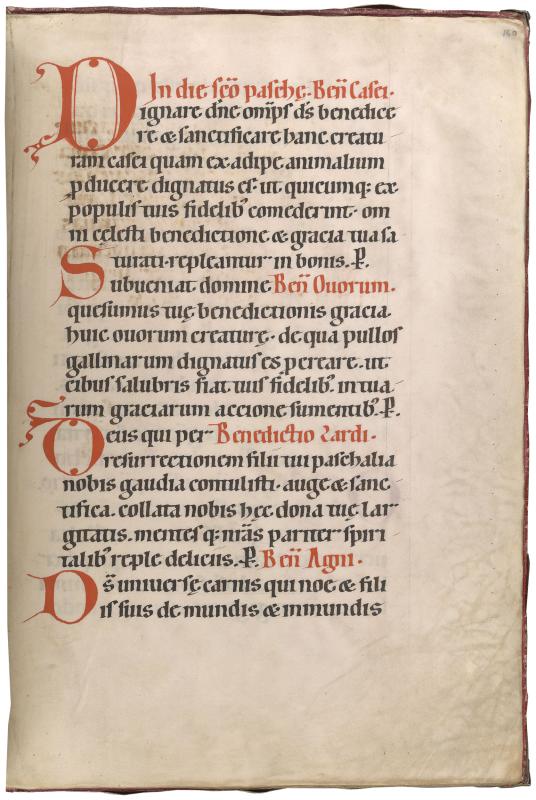 160
In die sc̄o paschę. Ben̄ Casei.
Dignare dn̄e om̄ps ds̄ benedice
re & sanctificare hanc creatu
ram casei quam ex adipe animalium
ꝓducere dignatus es. ut quicumq: ex
populis tuis fidelib' comederint. om
ni cęlesti benedictione & gracia tua sa
turati. repleantur in bonis. P̲.
Subueniat domine Ben̄ Ouorum.
quesumus tuę benedictionis gracia.
huic ouorum creaturę. de qua pullos
gallinarum dignatus es ꝓcreare. ut
cibus salubris fiat tuis fidelib'. in tua
rum graciarum accione sumentib'. P̲.
Deus qui per Benedictio Lardi.
resurrectionem filii tui paschalia
nobis gaudia contulisti. auge & sanc
tifica. collata nobis hęc dona tuę lar
gitatis. mentesq: nr̄as pariter spiri
talib' reple deliciis. P̲. Ben̄ Agni.
Ds̄ uniuersę carnis qui noe & fili
is suis de mundis & inmundis